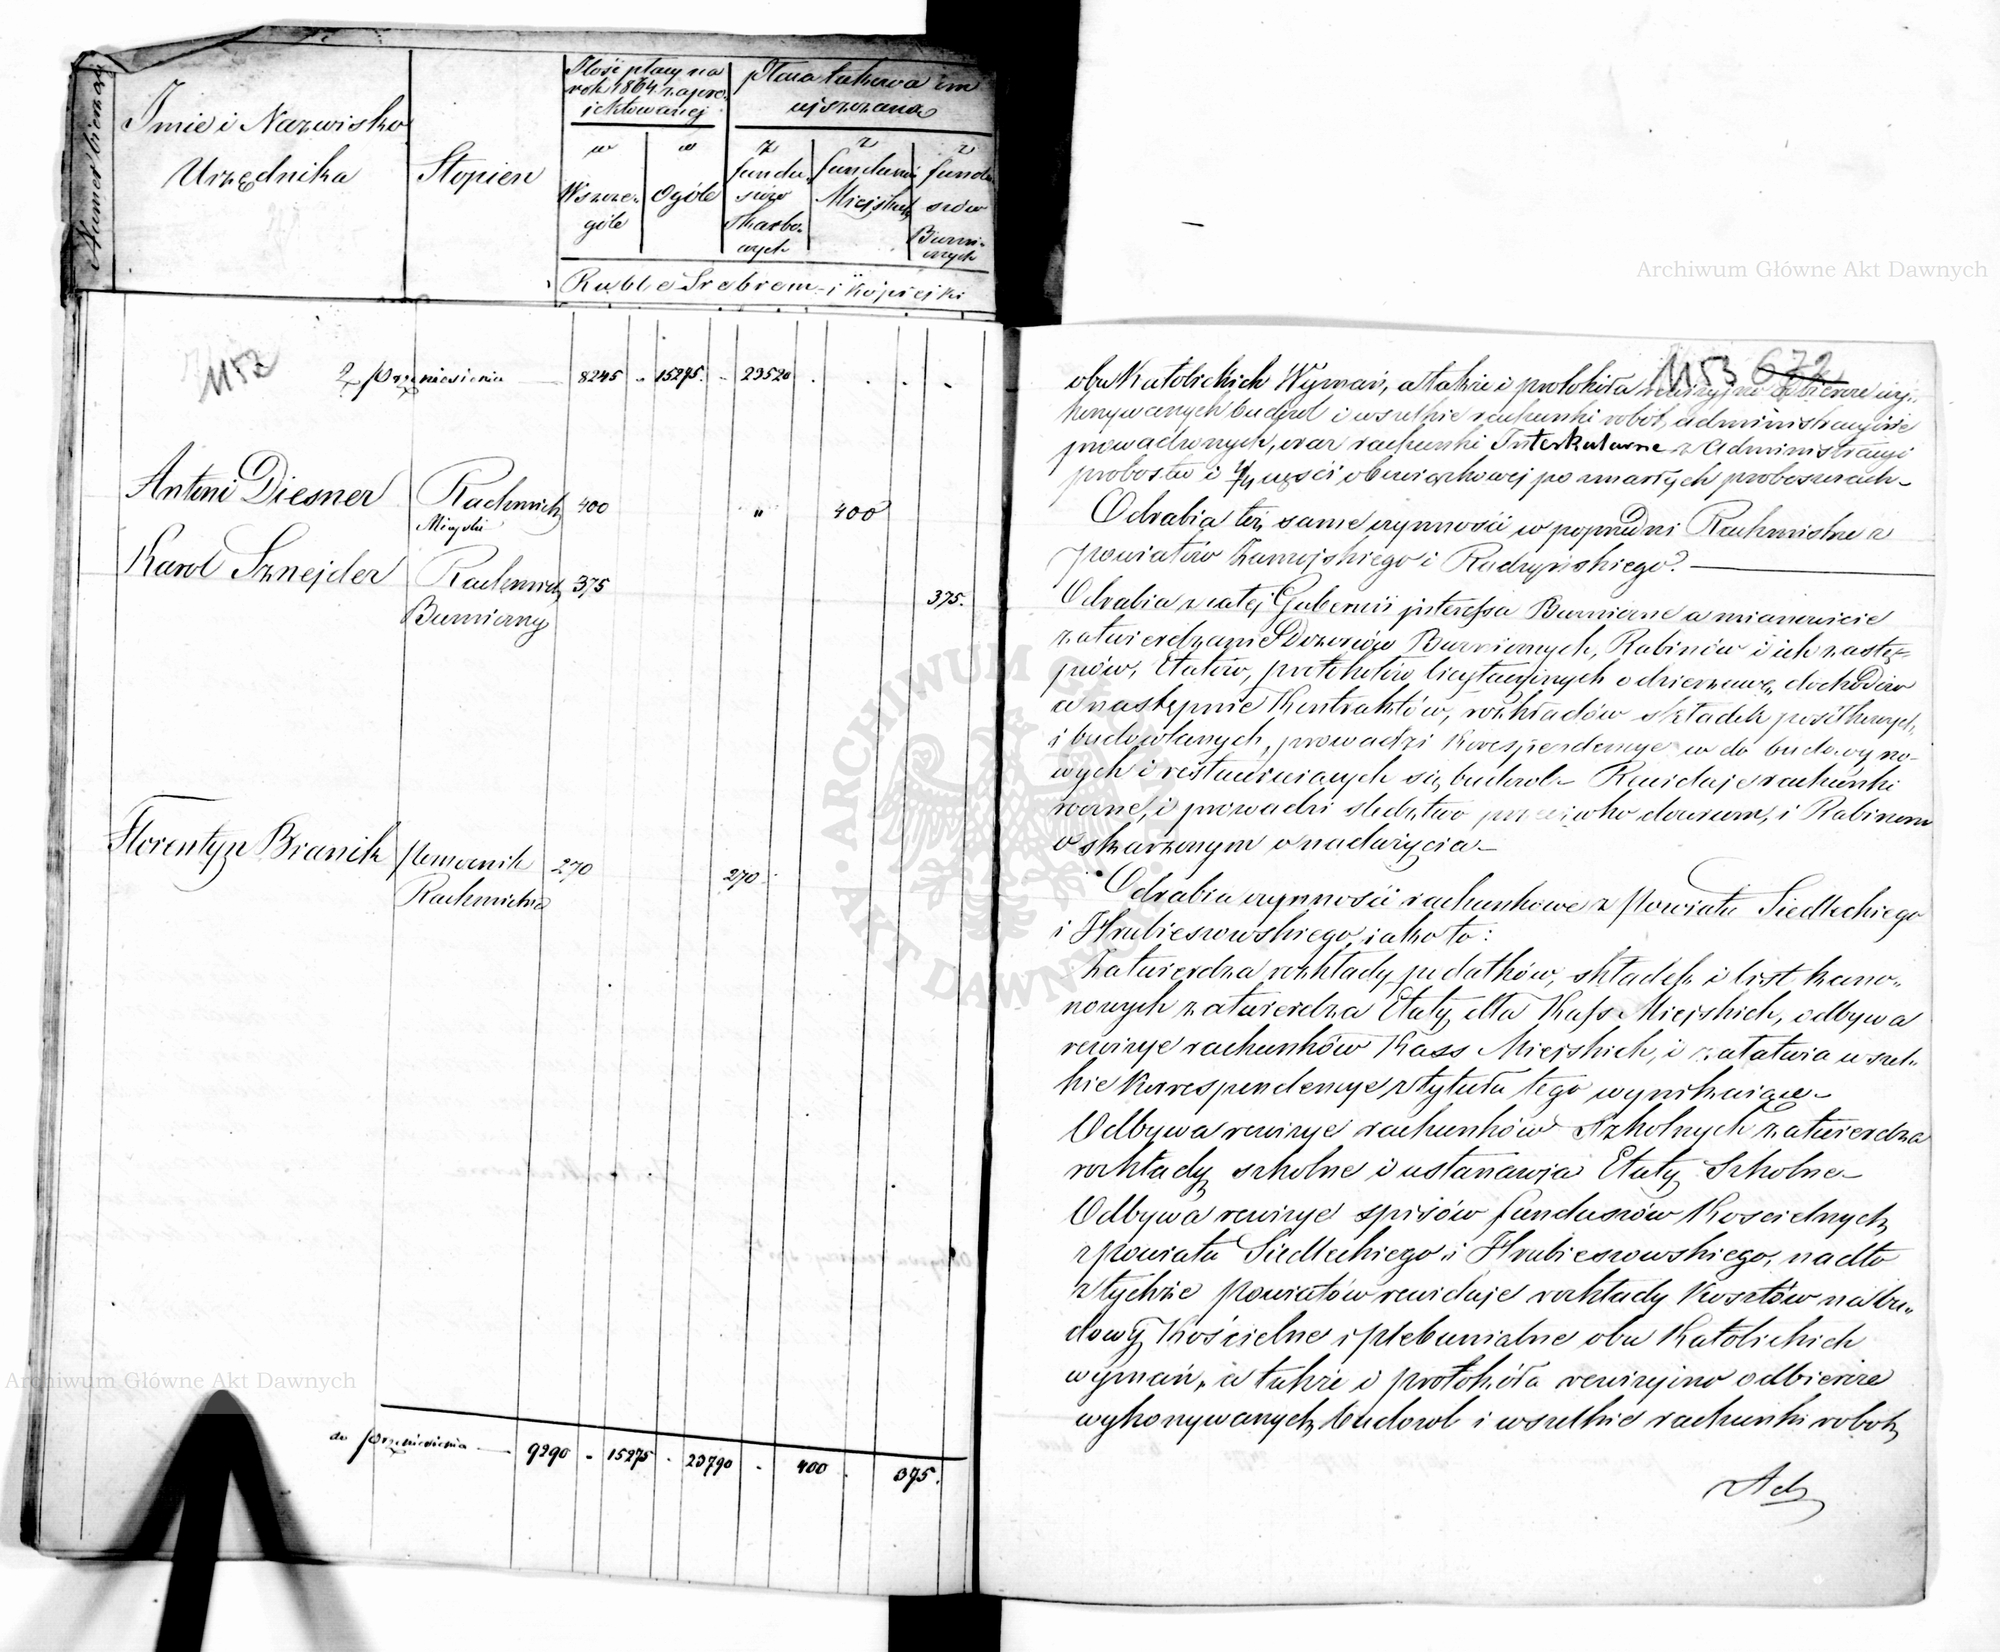 Numer bieżący
Imie i Nazwisko
Urzędnika
Stopien
Ilość płacy na
rok 1864 zapro-
iektowanej
w
Wszcze-
góle
w
Ogóle
płaca takowa iest
uiszczana
z
fundu-
szów
Skarbo-
wych
z
funduszów
Miejskich
z
fundu-
szów
Bużni-
cznych
Ruble Srebrem i Kopiejki
1152
Z przeniesienia 8245 - 15275. - 23520 . . . .
Antoni Diesner Rachmistrz 400 " 400
Miejski
Karol Sznejder Rachmistrz 375 375.
Bużniczny
Florentyn Branik Pomocnik 270 270.
Rachmistrza
do przeniesienia 9290 - 15275 . 23790 - 400 . 375.
1153 672
obu Katolickich Wyznań, a także i protokóła rewizyjno odbiercze wy-
konywanych budowl i wszelkie rachunki robót administracyjnie
prowadzonych, oraz rachunki Interkalarne z Administracyi
probostw i części obowiązkowej po zmarłych proboszczach
Odrabia też same czynności co poprzedni Rachmistrz z
powiatów Zamojskiego i Radzyńskiego.
Odrabia z całej Gubernii interessa Bużniczne a mianowicie
zatwierdzanie Dozorów Bużnicznych, Rabinów i ich zastęp-
ców, Etatów, protokołów licytacyjnych o dzierżawę dochodów
a następnie Kontraktów, rozkładów składek posiłkowych
i budowlanych, prowadzi korespondencye co do budowy no-
wych i restauruiących się budowl. Rewiduje rachunki
roczne, i prowadzi śledztwo przeciwko dozorom, i Rabinom
oskarżonym o nadużycia
Odrabia czynności rachunkowe z Powiatu Siedleckiego
i Hrubieszowskiego, iako to:
Zatwierdza rozkłady podatków, składek i list kano-
nowych zatwierdza Etaty dla Kass Miejskich, odbywa
rewizye rachunków Kass Miejskich, i załatwia wszel-
kie korespondencye z tytułu tego wynikaiące
Odbywa rewizye rachunków Szkolnych zatwierdza
rozkłady szkolne i ustanawia Etaty Szkolne
Odbywa rewizye spisów funduszów Kościelnych
z powiatu Siedleckiego i Hrubieszowskiego, nadto
z tychże powiatów rewiduje rozkłady kosztów na bu-
dowy Kościelne i plebanialne obu Katolickich
wyznań, a także i protokóła rewizyjno odbiercze
wykonywanych budowl i wszelkie rachunki robót
Archiwum Główne Akt Dawnych
Archiwum Główne Akt Dawnych
ARCHIWUM GŁÓWNE AKT DAWNYCH